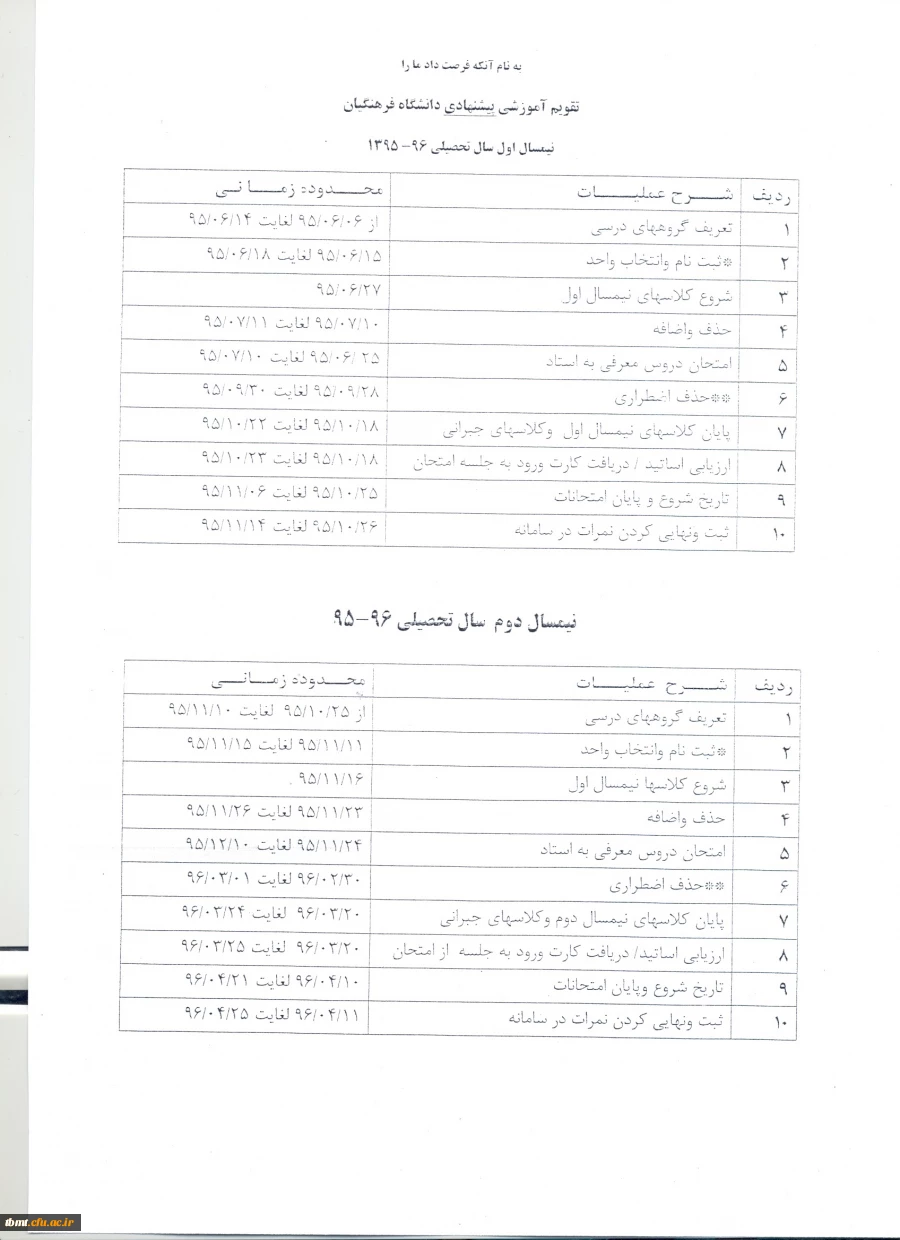 به نام آنکه فرصت داد ما را
تقویم آموزشی پیشنهادی دانشگاه فرهنگیان
نیمسال اول سال تحصیلی ۹۶-۱۳۹۵
ردیف شرح عملیات محدوده زمانی
۱ تعریف گروههای درسی از ۹۵/۰۶/۰۶ لغایت ۹۵/۰۶/۱۴
۲ *ثبت نام وانتخاب واحد ۹۵/۰۶/۱۵ لغایت ۹۵/۰۶/۱۸
۳ شروع کلاسهای نیمسال اول ۹۵/۰۶/۲۷
۴ حذف واضافه ۹۵/۰۷/۱۰ لغایت ۹۵/۰۷/۱۱
۵ امتحان دروس معرفی به استاد ۹۵/۰۶/ ۲۵ لغایت ۹۵/۰۷/۱۰
۶ **حذف اضطراری ۹۵/۰۹/۲۸ لغایت ۹۵/۰۹/۳۰
۷ پایان کلاسهای نیمسال اول وکلاسهای جبرانی ۹۵/۱۰/۱۸ لغایت ۹۵/۱۰/۲۲
۸ ارزیابی اساتید / دریافت کارت ورود به جلسه امتحان ۹۵/۱۰/۱۸ لغایت ۹۵/۱۰/۲۳
۹ تاریخ شروع و پایان امتحانات ۹۵/۱۰/۲۵ لغایت ۹۵/۱۱/۰۶
۱۰ ثبت ونهایی کردن نمرات در سامانه ۹۵/۱۰/۲۶ لغایت ۹۵/۱۱/۱۴
نیمسال دوم سال تحصیلی ۹۶-۹۵
ردیف شرح عملیات محدوده زمانی
۱ تعریف گروههای درسی از ۹۵/۱۰/۲۵ لغایت ۹۵/۱۱/۱۰
۲ *ثبت نام وانتخاب واحد ۹۵/۱۱/۱۱ لغایت ۹۵/۱۱/۱۵
۳ شروع کلاسها نیمسال اول ۹۵/۱۱/۱۶ .
۴ حذف واضافه ۹۵/۱۱/۲۳ لغایت ۹۵/۱۱/۲۶
۵ امتحان دروس معرفی به استاد ۹۵/۱۱/۲۴ لغایت ۹۵/۱۲/۱۰
۶ **حذف اضطراری ۹۶/۰۲/۳۰ لغایت ۹۶/۰۳/۰۱
۷ پایان کلاسهای نیمسال دوم وکلاسهای جبرانی ۹۶/۰۳/۲۰ لغایت ۹۶/۰۳/۲۴
۸ ارزیابی اساتید/ دریافت کارت ورود به جلسه از امتحان ۹۶/۰۳/۲۰ لغایت ۹۶/۰۳/۲۵
۹ تاریخ شروع وپایان امتحانات ۹۶/۰۴/۱۰ لغایت ۹۶/۰۴/۲۱
۱۰ ثبت ونهایی کردن نمرات در سامانه ۹۶/۰۴/۱۱ لغایت ۹۶/۰۴/۲۵
tbmt.cfu.ac.ir